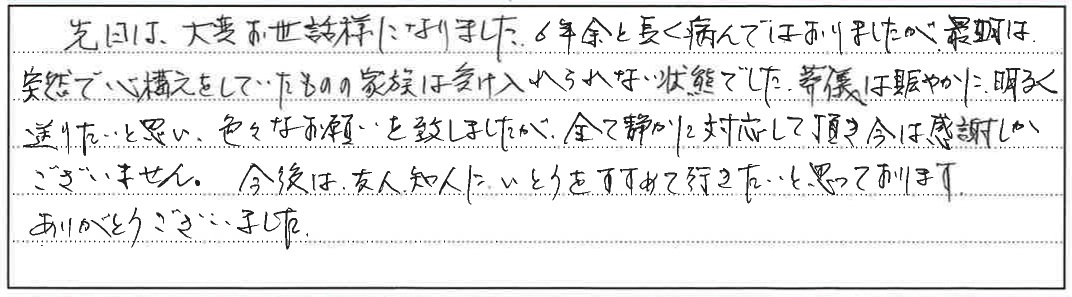 先日は、大変お世話様になりました。6年余と長く病んではおりましたが、最期は
突然で心構えをしていたものの家族は受け入れられない状態でした。葬儀は賑やかに、明るく
送りたいと思い、色々なお願いを致しましたが、全て静かに対応して頂き今は感謝しか
ございません。 今後は、友人知人に、いとうをすすめて行きたいと思っております。
ありがとうございました。